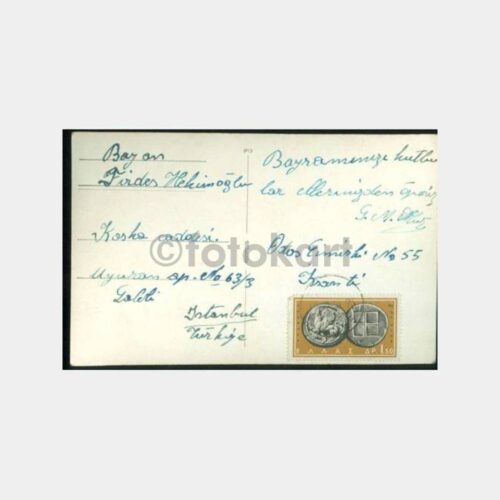 Bayan
Firdes Hekimoğlu
Koska caddesi.
Uyuran ap. No 63/3
Laleli
Istanbul
Türkiye
Bayramınızı kutlu
lar ellerinizden öperiz
No 55
Ksanti
©fotokart
ΕΛΛΑΣ ΔΡ. 1.50